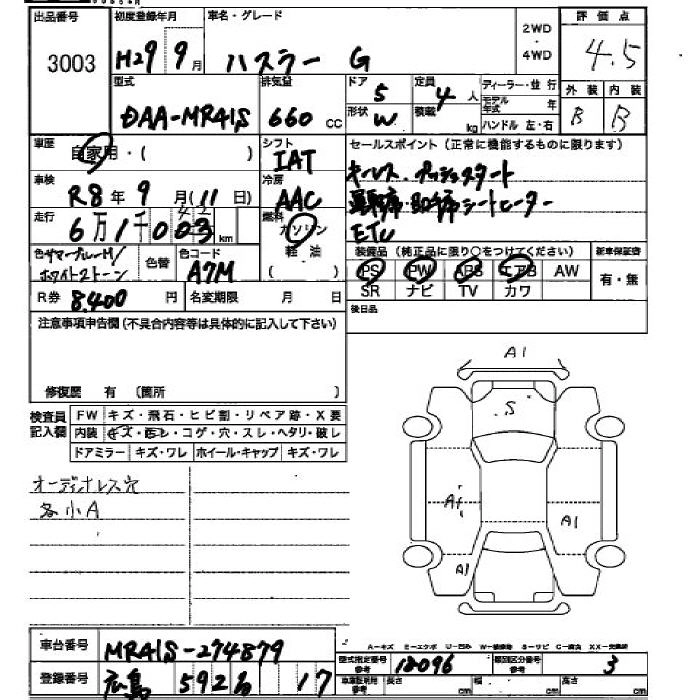 出品番号 初度登録年月 車名・グレード 2WD・4WD 評価点
3003 H29年9月 ハスラー G 4.5
型式 排気量 ドア 5 定員 4人 ディーラー・並行 外装 内装
DAA-MR41S 660 CC 形状 W 積載 kg モデル年式 年 ハンドル 左・右 B B
車歴 自家用・( ) シフト IAT セールスポイント(正常に機能するものに限ります)
車検 R8年9月(11日) 冷房 AAC キーレス・プッシュスタート
走行 6万1千003km 燃料 ガソリン 軽油 ( ) 運転席・助手席シートヒーター
ETC
色 サマーブルーM/ホワイト2トーン 色替 色コード A7M 装備品(純正品に限り○をつけてください) 新車保証書
PS PW ABS エアB AW 有・無
R券 8,400円 名変期限 月 日 SR ナビ TV カワ
注意事項申告欄(不具合内容等は具体的に記入して下さい) 後日品
修復歴 有 (箇所 )
検査員記入欄 FW キズ・飛石・ヒビ割・リペア跡・X要
内装 キズ・汚レ・コゲ・穴・スレ・ヘタリ・破レ
ドアミラー キズ・ワレ ホイール・キャップ キズ・ワレ
オーディオレス穴
各小A
A1
S
A1
A1
A1
車台番号 MR41S-274879
A-キズ E-エクボ U-凹み W-補修跡 S-サビ C-腐食 XX-交換済
型式指定番号 参考 18096 類別区分番号 参考 3
登録番号 広島 592 17 車庫証明用 参考 長さ cm 幅 cm 高さ cm